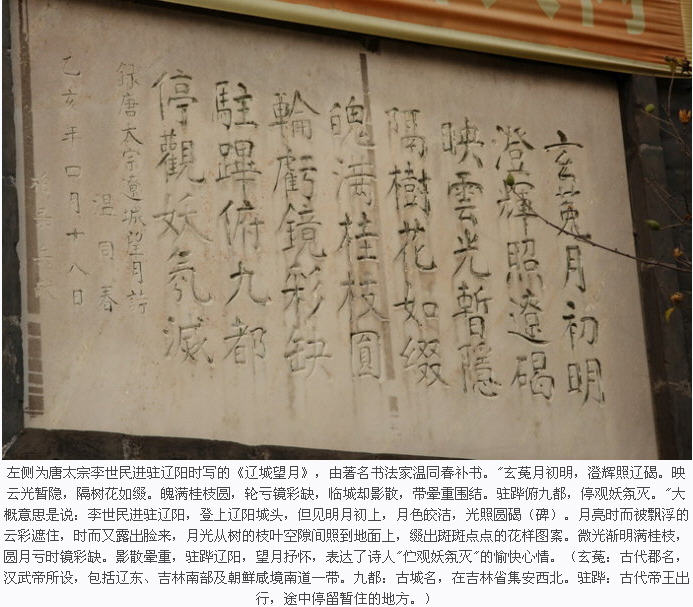 玄菟月初明
澄輝照遼碣
映雲光暫隱
隔樹花如缀
魄满桂枝圓
輪虧鏡彩缺
駐蹕俯九都
停觀妖氛滅
録唐太宗遼城望月詩
温同春
乙亥年四月十八日
左侧为唐太宗李世民进驻辽阳时写的《辽城望月》，由著名书法家温同春补书。"玄菟月初明，澄辉照辽碣。映
云光暂隐，隔树花如缀。魄满桂枝圆，轮亏镜彩缺，临城却影散，带晕重围结。驻跸俯九都，停观妖氛灭。"大
概意思是说：李世民进驻辽阳，登上辽阳城头，但见明月初上，月色皎洁，光照圆碣（碑）。月亮时而被飘浮的
云彩遮住，时而又露出脸来，月光从树的枝叶空隙间照到地面上，缀出斑斑点点的花样图案。微光渐明满桂枝，
圆月亏时镜彩缺。影散晕重，驻跸辽阳，望月抒怀，表达了诗人"伫观妖氛灭"的愉快心情。（玄菟：古代郡名，
汉武帝所设，包括辽东、吉林南部及朝鲜咸境南道一带。九都：古城名，在吉林省集安西北。驻跸：古代帝王出
行，途中停留暂住的地方。）